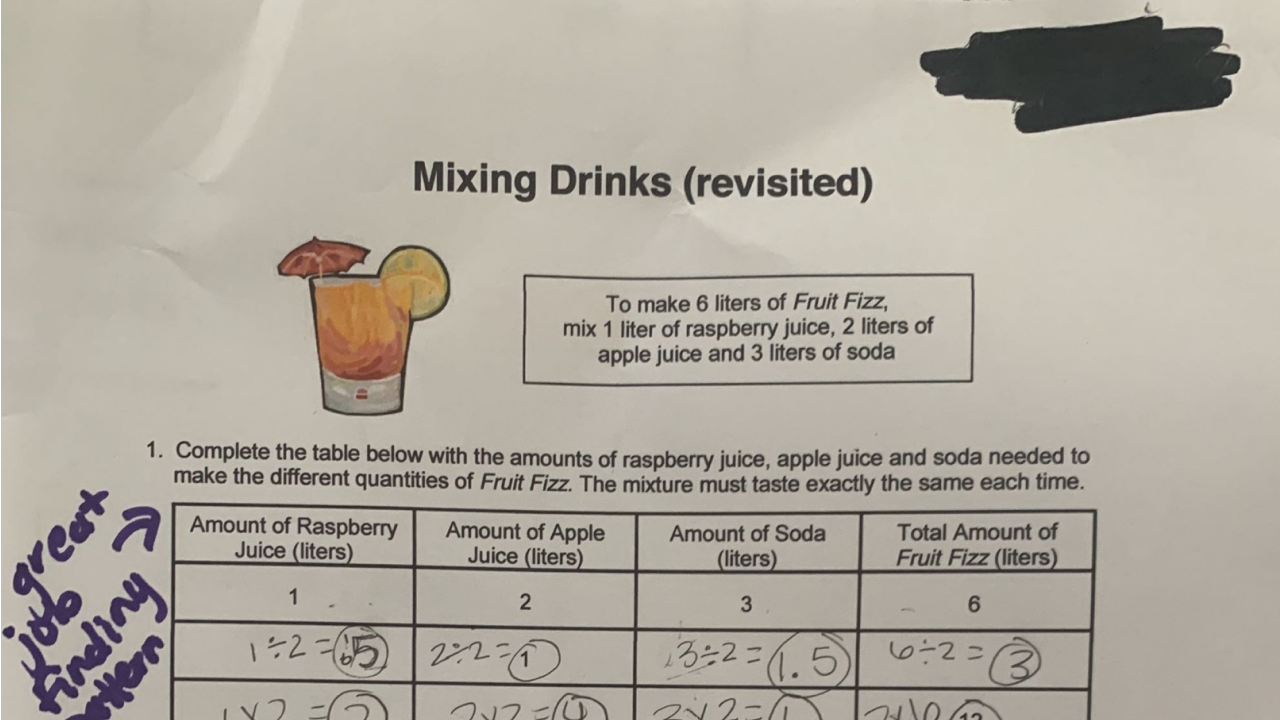 Mixing Drinks (revisited)
To make 6 liters of Fruit Fizz,
mix 1 liter of raspberry juice, 2 liters of
apple juice and 3 liters of soda
1. Complete the table below with the amounts of raspberry juice, apple juice and soda needed to
make the different quantities of Fruit Fizz. The mixture must taste exactly the same each time.
great
job
finding
pattern
Amount of Raspberry
Juice (liters)
Amount of Apple
Juice (liters)
Amount of Soda
(liters)
Total Amount of
Fruit Fizz (liters)
1
2
3
6
1÷2=.5
2÷2=1
3÷2=1.5
6÷2=3